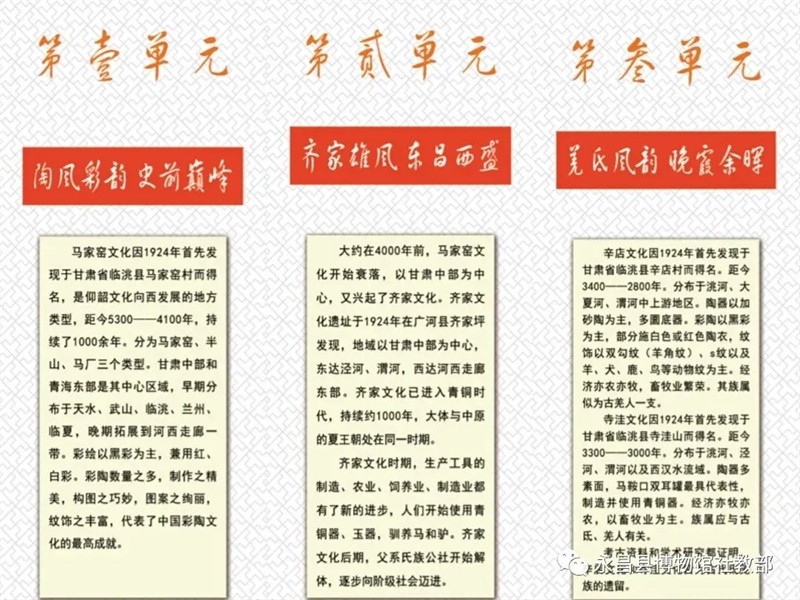 第壹单元
陶风彩韵 史前巅峰
马家窑文化因1924年首先发
现于甘肃省临洮县马家窑村而得
名，是仰韶文化向西发展的地方
类型，距今5300——4100年，持
续了1000余年。分为马家窑、半
山、马厂三个类型。甘肃中部和
青海东部是其中心区域，早期分
布于天水、武山、临洮、兰州、
临夏，晚期拓展到河西走廊一
带。彩绘以黑彩为主，兼用红、
白彩。彩陶数量之多，制作之精
美，构图之巧妙，图案之绚丽，
纹饰之丰富，代表了中国彩陶文
化的最高成就。
第贰单元
齐家雄风 东昌西盛
大约在4000年前，马家窑文
化开始衰落，以甘肃中部为中
心，又兴起了齐家文化。齐家文
化遗址于1924年在广河县齐家坪
发现，地域以甘肃中部为中心，
东达泾河、渭河，西达河西走廊
东部。齐家文化已进入青铜时
代，持续约1000年，大体与中原
的夏王朝处在同一时期。
齐家文化时期，生产工具的
制造、农业、饲养业、制造业都
有了新的进步，人们开始使用青
铜器、玉器，驯养马和驴。齐家
文化后期，父系氏族公社开始解
体，逐步向阶级社会迈进。
第叁单元
羌氐风韵 晚霞余晖
辛店文化因1924年首先发现于
甘肃省临洮县辛店村而得名。距今
3400——2800年。分布于洮河、大
夏河、渭河中上游地区。陶器以加
砂陶为主，多圜底器。彩陶以黑彩
为主，部分施白色或红色陶衣，纹
饰以双勾纹（羊角纹）、s纹以及
羊、犬、鹿、鸟等动物纹为主。经
济亦农亦牧，畜牧业繁荣。其族属
似为古羌人一支。
寺洼文化因1924年首先发现于
甘肃省临洮县寺洼山而得名。距今
3300——3000年。分布于洮河、泾
河、渭河以及西汉水流域。陶器多
素面，马鞍口双耳罐最具代表性，
制造并使用青铜器。经济亦牧亦
农，以畜牧业为主。族属应与古
氐、羌人有关。
考古资料和学术研究都证明，
辛店文
族的遗留。
永昌县博物馆社教部